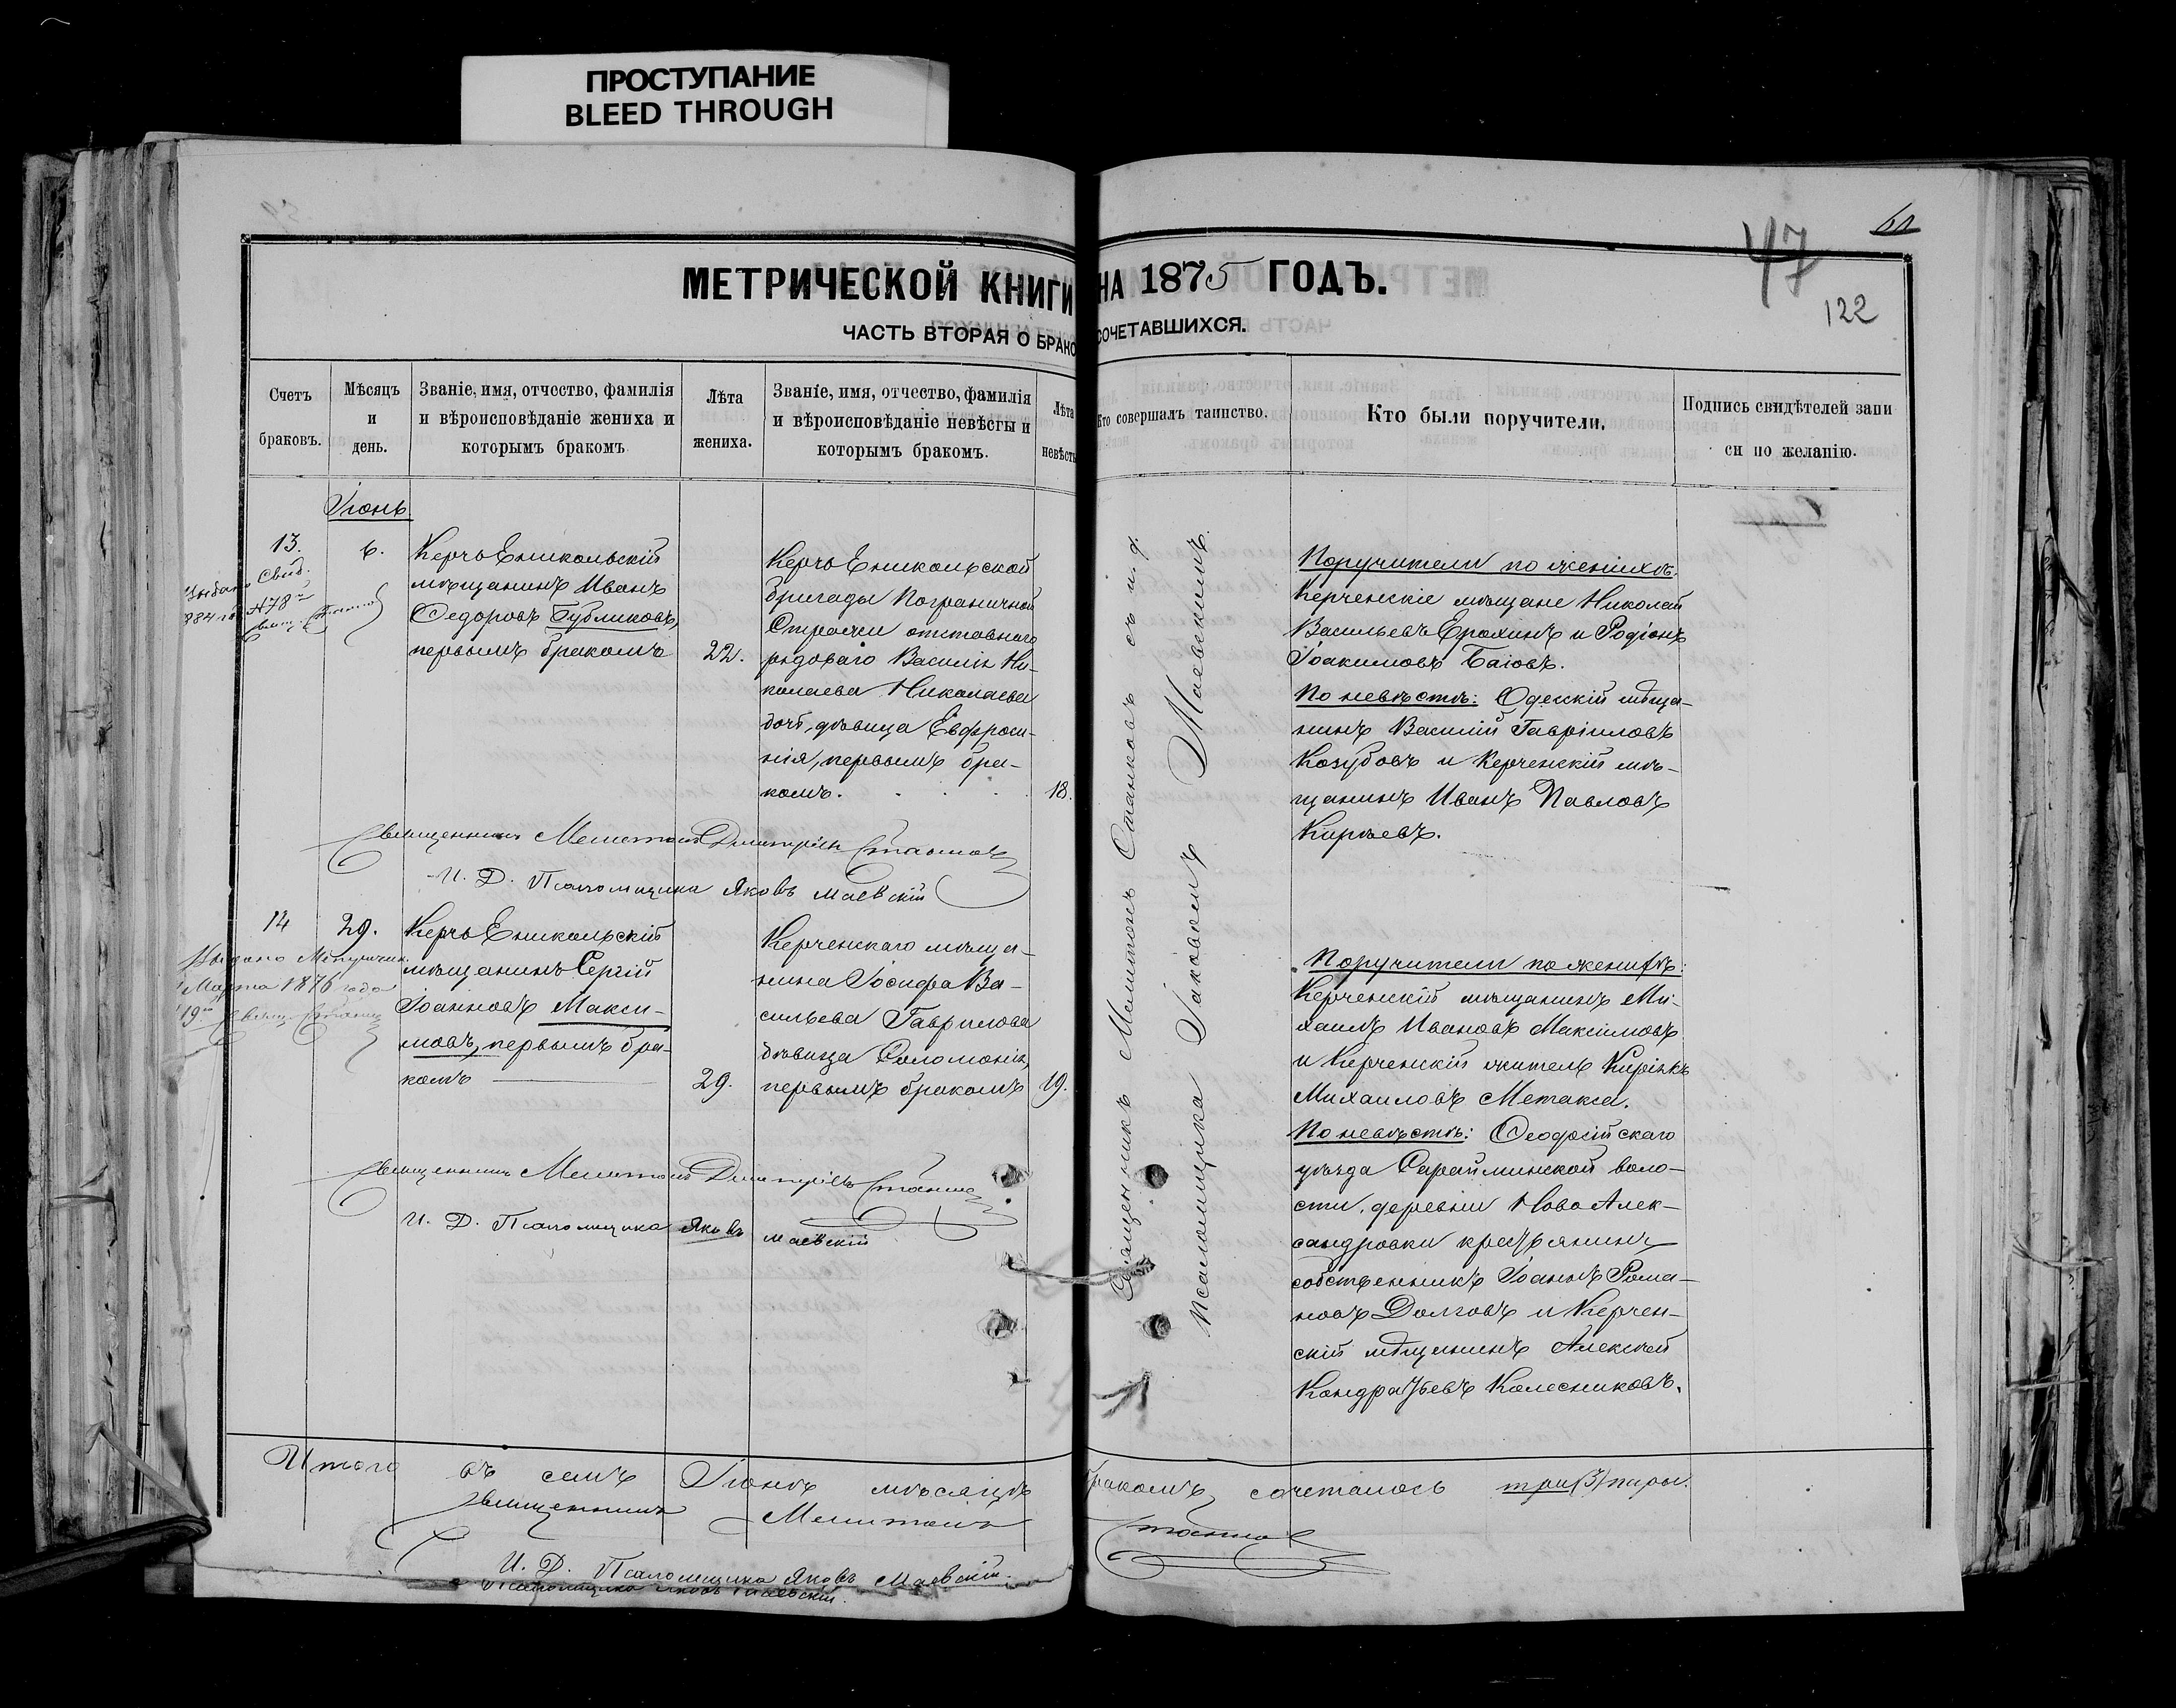 ПРОСТУПАНИЕ
BLEED THROUGH
47
122
МЕТРИЧЕСКОЙ КНИГИ НА 1875 ГОДЪ.
ЧАСТЬ ВТОРАЯ О БРАКОСОЧЕТАВШИХСЯ.
Счетъ браковъ.
Мѣсяцъ и день.
Званіе, имя, отчество, фамилія
и вѣроисповѣданіе жениха и
которымъ бракомъ
Лѣта жениха.
Званіе, имя, отчество, фамилія
и вѣроисповѣданіе невѣсты и
которымъ бракомъ.
Лѣта невѣсты
Кто совершалъ таинство.
Кто были поручители.
Подпись свидѣтелей запи
си по желанію.
Іюнь
13.
6.
Керчь Еникольскій
мѣщанинъ Иванъ
Ѳедоровъ Бубликовъ,
первымъ бракомъ
22.
Керчь Еникольской
бригады Пограничной
Стражи отставнаго
рядоваго Василія Ни-
колаева Николаева
дочь, дѣвица Евфроси-
нія, первымъ бра-
комъ.
18.
Священникъ Мелитонъ Станковъ съ и. д.
Псаломщика Іаковомъ Маевскимъ.
Поручители по женихѣ:
Керченскіе мѣщане Николай
Васильевъ Ерохинъ и Родіонъ
Іоакимовъ Баіовъ.
По невѣстѣ: Одесскій мѣща-
нинъ Василій Гавріиловъ
Козубовъ и Керченскій мѣ-
щанинъ Иванъ Павловъ
Кирѣевъ.
Священникъ Мелитонъ Димитріевъ
И. Д. Псаломщика Яковъ Маевскій
14
29.
Выдано
Марта 1876 года
19
Керчь Еникольскій
мѣщанинъ Сергій
Іоанновъ Макси-
мовъ, первымъ бра-
комъ
29.
Керченскаго мѣща-
нина Іосифа Ва-
сильева Гаврилова
дѣвица Соломонія,
первымъ бракомъ
19.
Поручители по женихѣ:
Керченскій мѣщанинъ Ми-
хаилъ Ивановъ Максимовъ
и Керченскій житель Киріакъ
Михаиловъ Метакса.
По невѣстѣ: Ѳеодосійскаго
уѣзда Сарайминской воло-
сти, деревни Ново Алек-
сандровки крестьянинъ
собственникъ Іоаннъ Рома-
новъ Долговъ и Керчен-
скій мѣщанинъ Алексѣй
Кондратьевъ Колесниковъ.
Священникъ Мелитонъ Димитріевъ
И. Д. Псаломщика Яковъ Маевскій
Итого въ семъ Іюнѣ мѣсяцѣ бракомъ сочеталось три (3) пары.
Священникъ Мелитонъ
И. Д. Псаломщика Яковъ Маевскій.
Псаломщика Яковъ Маевскій.